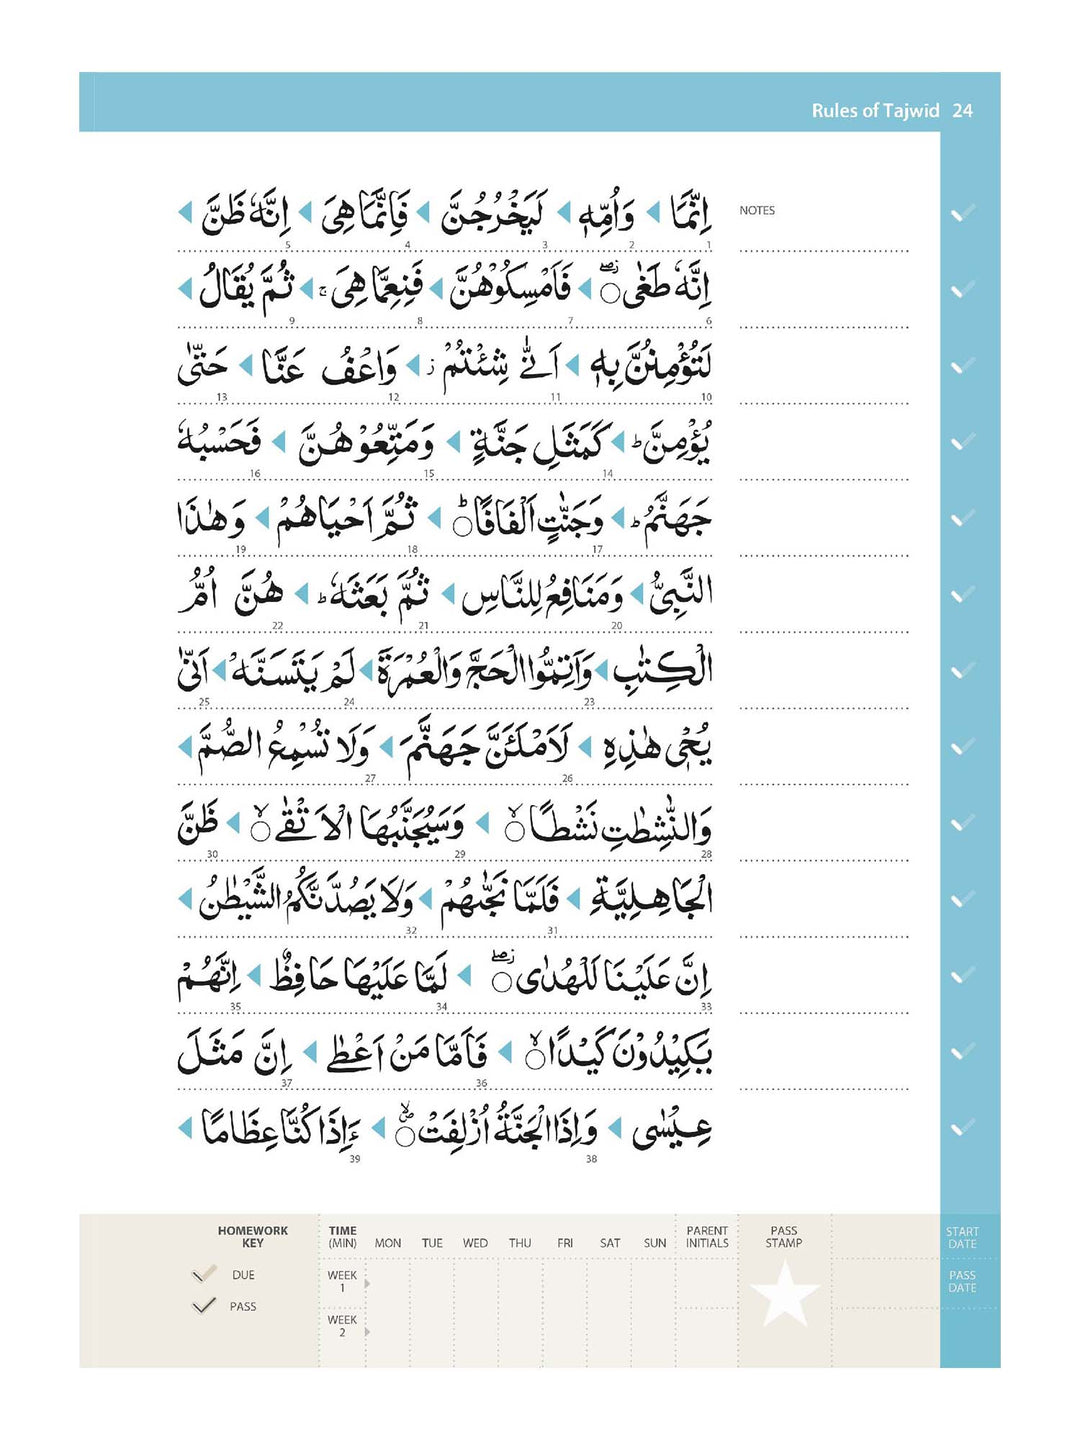 Rules of Tajwid 24
اِنَّمَا ◀ وَاُمِّهٖ ◀ لَيَخْرُجُنَّ ◀ فَاِنَّمَا هِيَ ◀ اِنَّهٗ ظَنَّ ◀
NOTES
1 2 3 4 5
اِنَّهٗ طَغٰى ۝ ◀ فَاَمْسِكُوْهُنَّ ◀ فَنِعِمَّا هِيَ ۚ ◀ ثُمَّ يُقَالُ ◀
6 7 8 9
لَتُؤْمِنُنَّ بِهٖ ◀ اَنّٰى شِئْتُمْ ؗ ◀ وَاعْفُ عَنَّا ◀ حَتّٰى
10 11 12 13
يُؤْمِنَّ ؕ ◀ كَمَثَلِ جَنَّةٍ ◀ وَمَتِّعُوْهُنَّ ◀ فَحَسْبُهٗ
14 15 16
جَهَنَّمُ ؕ ◀ وَجَنّٰتٍ اَلْفَافًا ۝ؕ ◀ ثُمَّ اَحْيَاهُمْ ◀ وَهٰذَا
17 18 19
النَّبِيُّ ◀ وَمَنَافِعُ لِلنَّاسِ ◀ ثُمَّ بَعَثَهٗ ؕ ◀ هُنَّ اُمُّ
20 21 22
الْكِتٰبِ ◀ وَاَتِمُّوا الْحَجَّ وَالْعُمْرَةَ ◀ لَمْ يَتَسَنَّهْ ◀ اَنّٰى
23 24 25
يُحْيٖ هٰذِهِ ◀ لَاَمْلَـَٔنَّ جَهَنَّمَ ◀ وَلَا تُسْمِعُ الصُّمَّ ◀
26 27
وَالنّٰشِطٰتِ نَشْطًا ۝ۙ ◀ وَسَيُجَنَّبُهَا الْاَتْقٰى ۝ۙ ◀ ظَنَّ
28 29 30
الْجَاهِلِيَّةِ ◀ فَلَمَّا نَجّٰىهُمْ ◀ وَلَا يَصُدَّنَّكُمُ الشَّيْطٰنُ ◀
31 32
اِنَّ عَلَيْنَا لَلْهُدٰى ۝ ◀ لَمَّا عَلَيْهَا حَافِظٌ ◀ اِنَّهُمْ
33 34 35
يَكِيْدُوْنَ كَيْدًا ۝ۙ ◀ فَاَمَّا مَنْ اَعْطٰى ◀ اِنَّ مَثَلَ
36 37
عِيْسٰى ◀ وَاِذَا الْجَنَّةُ اُزْلِفَتْ ۝ ◀ ءَاِذَا كُنَّا عِظَامًا ◀
38 39
HOMEWORK KEY
DUE
PASS
TIME (MIN) MON TUE WED THU FRI SAT SUN PARENT INITIALS PASS STAMP START DATE
WEEK 1
PASS DATE
WEEK 2